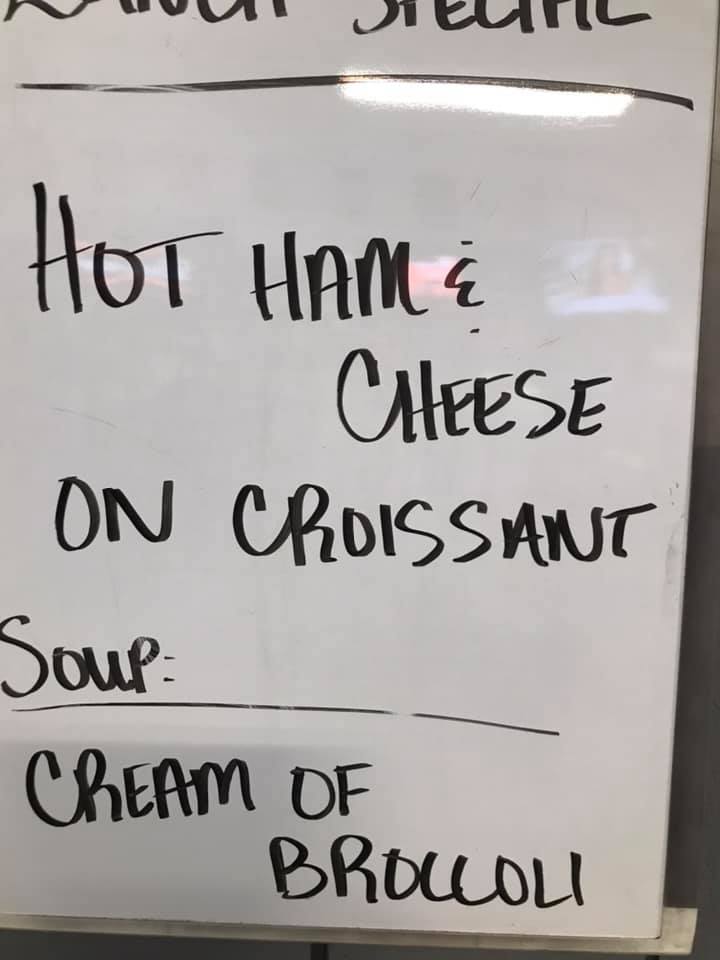 LUNCH SPECIAL
HOT HAM &
CHEESE
ON CROISSANT
SOUP:
CREAM OF
BROCCOLI